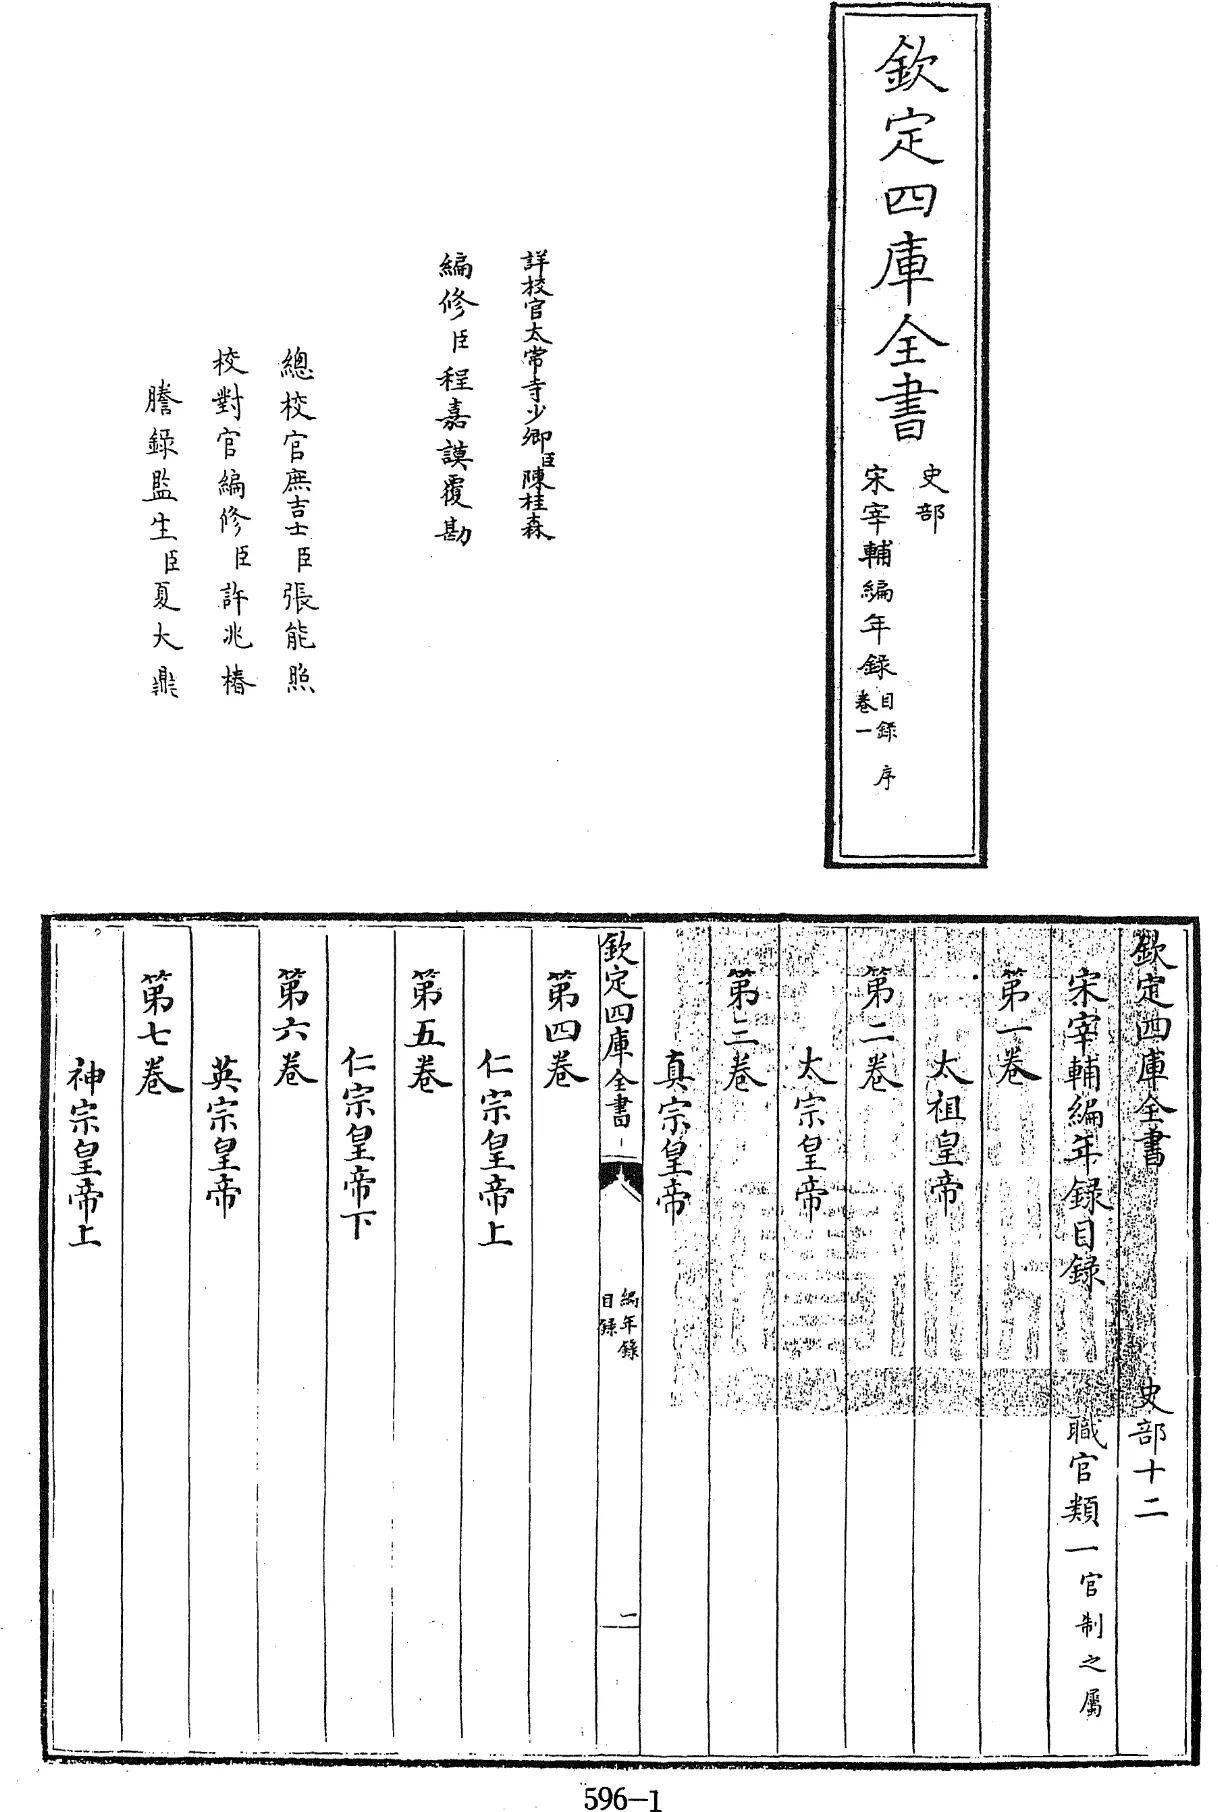 欽定四庫全書
史部
宋宰輔編年録
目録 序
卷一
詳校官太常寺少卿臣陳桂森
編修臣程嘉謨覆勘
總校官庶吉士臣張能照
校對官編修臣許兆椿
謄錄監生臣夏大鼎
欽定四庫全書 史部十二
宋宰輔編年録目録 職官類一官制之屬
第一卷
太祖皇帝
第二卷
太宗皇帝
第三卷
真宗皇帝
欽定四庫全書
編年錄
目録
一
第四卷
仁宗皇帝上
第五卷
仁宗皇帝下
第六卷
英宗皇帝
第七卷
神宗皇帝上
596-1